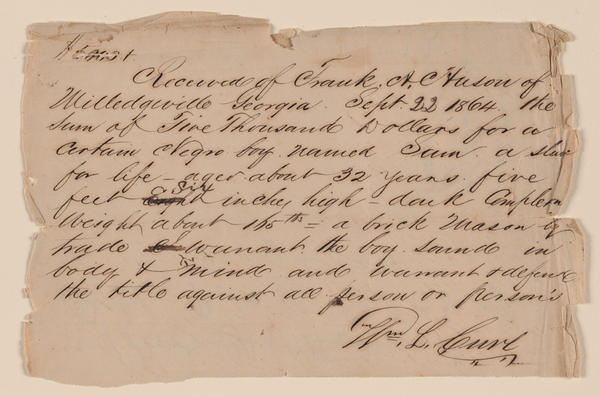 Received of Frank. A. CHuson of
Milledgeville Georgia. Sept. 22 1864. the
Sum of Five Thousand Dollars for a
certain Negro boy. named Sam. a slave
for life - aged about 32 years. five
feet Eight Six inches high - dark Complexn
Weight about 145 lbs = a brick Mason by
trade & warrant. the boy. sound in
body & mind and warrant & defend
the title against all person or person's
Wm. L. Curl